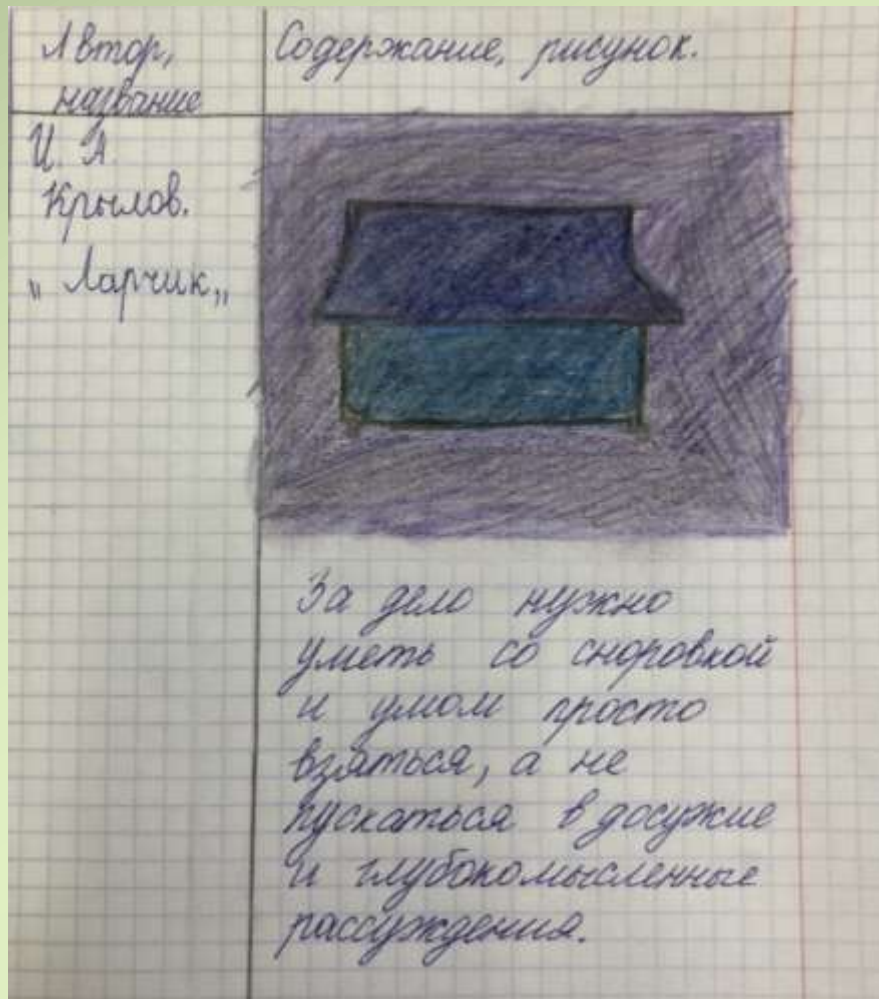 Автор,
название
Содержание, рисунок.
И. А.
Крылов.
„Ларчик„
За дело нужно
уметь со сноровкой
и умом просто
взяться, а не
пускаться в досужие
и глубокомысленные
рассуждения.